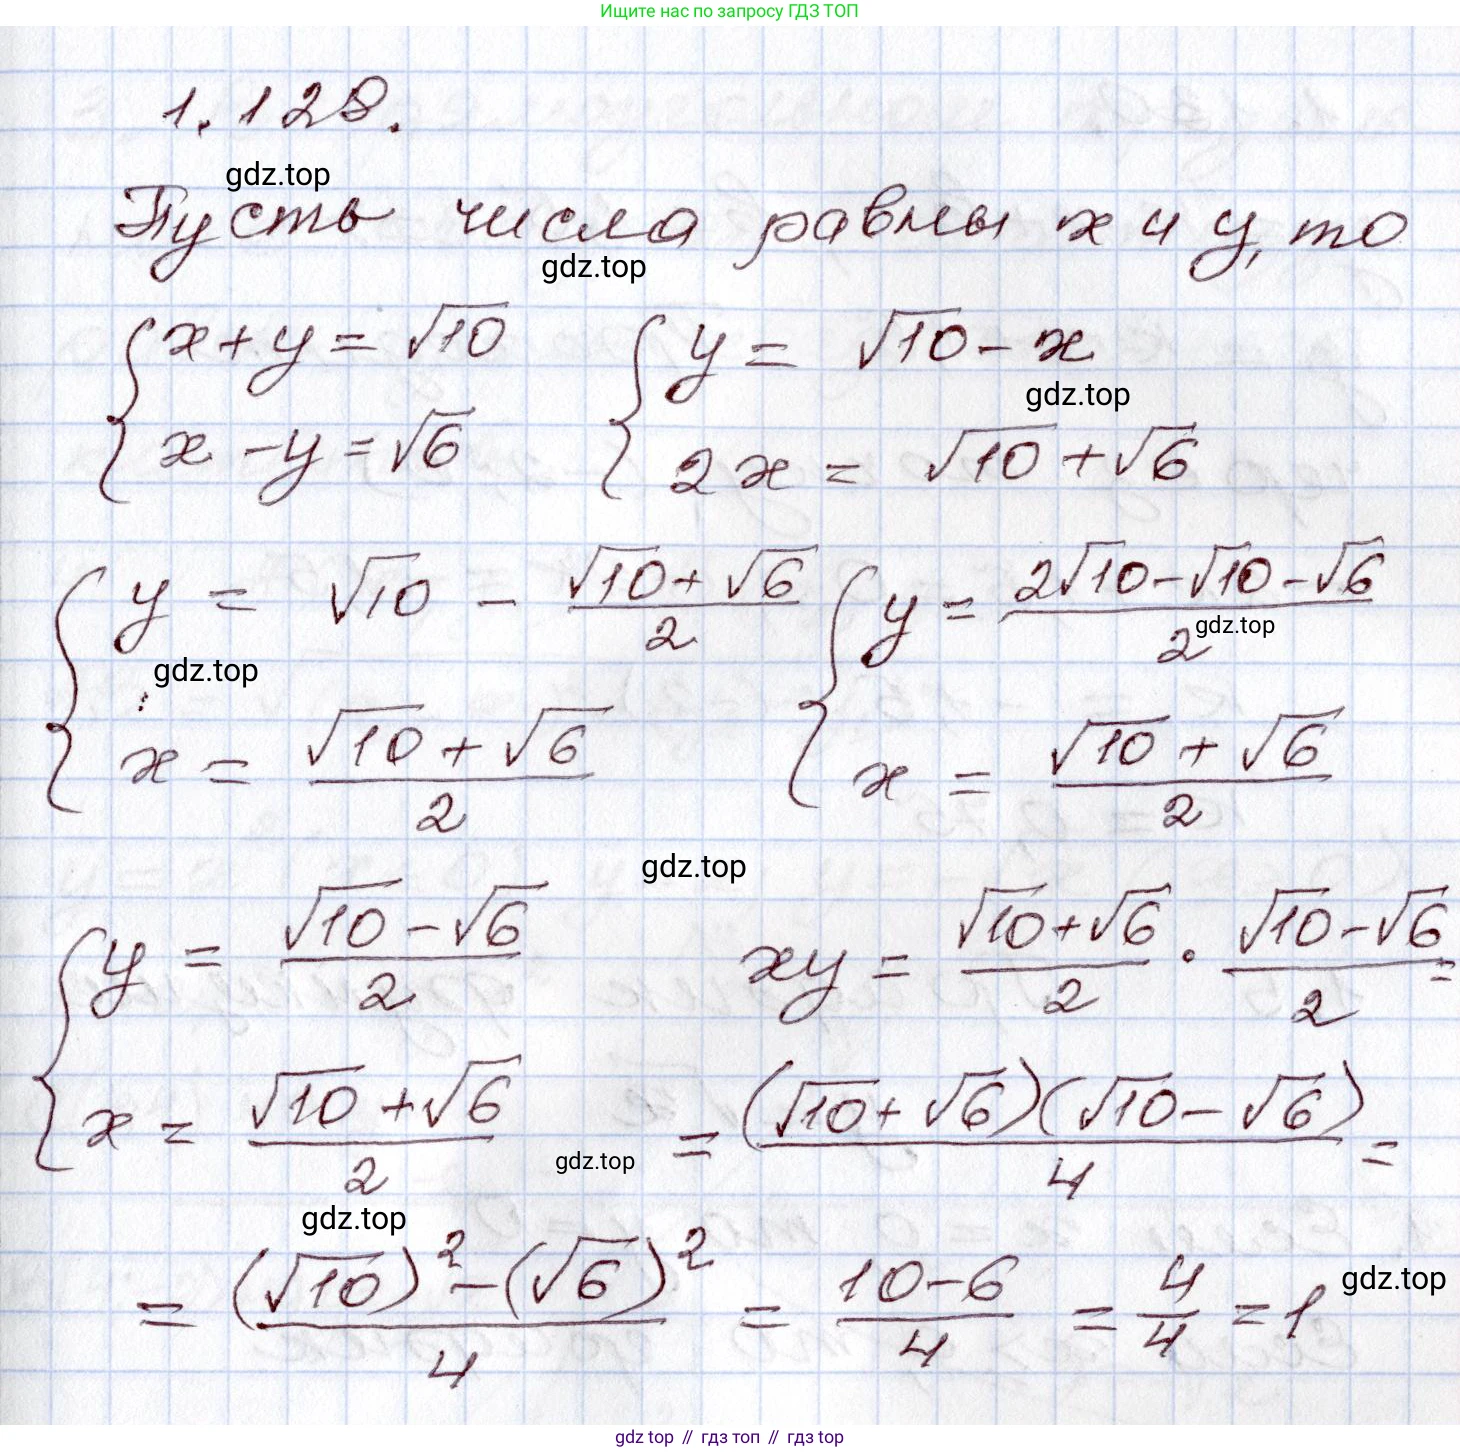 Ищите нас по запросу ГДЗ ТОП
1.128.
gdz.top
Пусть числа равны x и y, то
gdz.top
{ x + y = √10
x - y = √6
{ y = √10 - x
gdz.top
2x = √10 + √6
{ y = √10 - (√10 + √6)/2
gdz.top
x = (√10 + √6)/2
{ y = (2√10 - √10 - √6)/2
gdz.top
x = (√10 + √6)/2
gdz.top
{ y = (√10 - √6)/2
x = (√10 + √6)/2
gdz.top
xy = (√10 + √6)/2 · (√10 - √6)/2 =
= (√10 + √6)(√10 - √6)/4 =
gdz.top
= ((√10)² - (√6)²)/4 = (10 - 6)/4 = 4/4 = 1
gdz.top
gdz top // гдз топ // гдз top